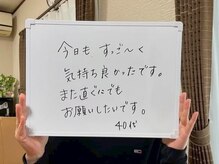 今日も すっご〜く
気持ち良かったです。
また直ぐにでも
お願いしたいです。
40代